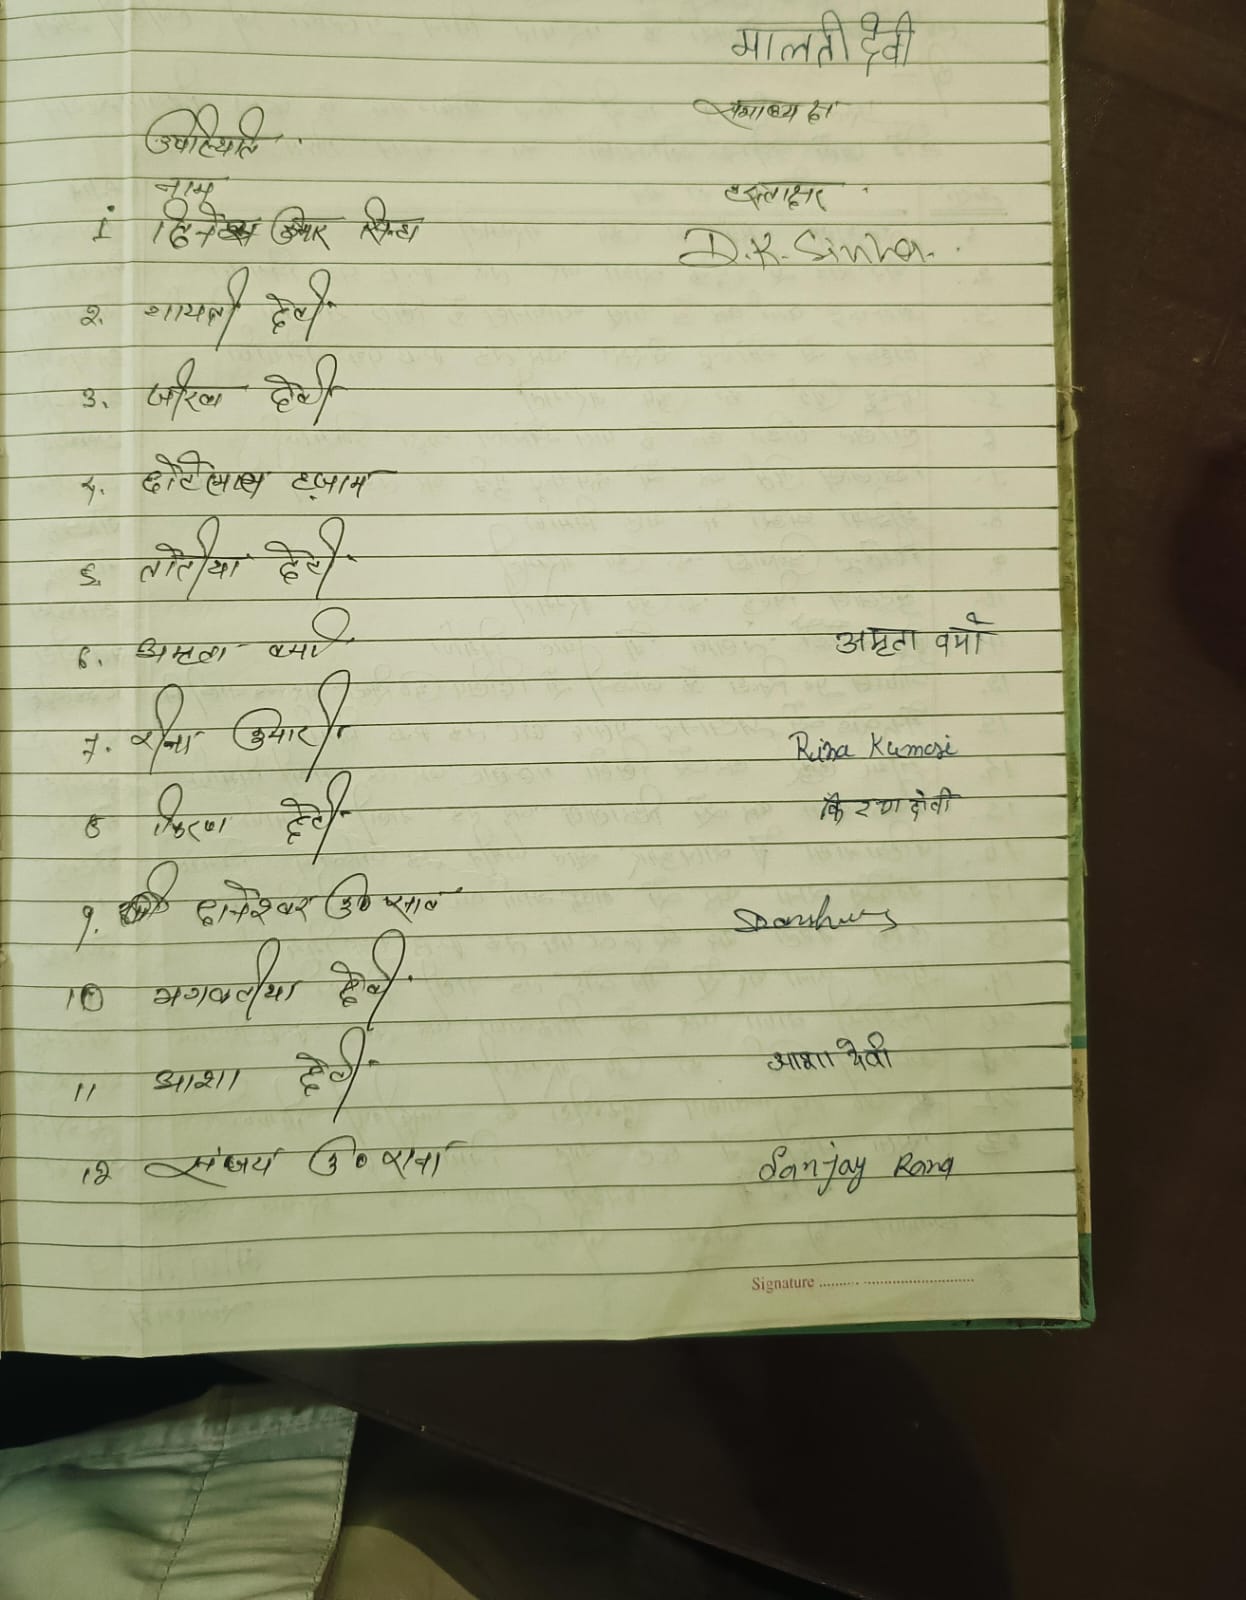 मालती देवी
सभाध्यक्ष
उपस्थिति
नाम हस्ताक्षर
1 दिनेश कुमार सिन्हा D.K. Sinha
२. गायत्री देवी
३. देवी
४. छोटेलाल हजाम
५. देवी
६. अमृता वर्मा अमृता वर्मा
7. रीना कुमारी Rina Kumari
8 किरण देवी किरण देवी
9. दानेश्वर कु०
10 भगवतीया देवी
11 आशा देवी आशा देवी
12 संजय कु० राणा Sanjay Rana
Signature